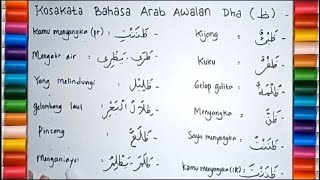 Kosakata Bahasa Arab Awalan Dha (ظ)
Kamu menyangka (pr)
ظَنَنْتِ
Kijang
ظَبْيٌ
Mengalir air
Kuku
ظُفْرٌ
Yang melindungi
ظَلِيْلٌ
Gelap gulita
Gelombang laut
ظِلَالُ الْبَحْرِ
Menyangka
ظَنَّ
Pincang
ظَالِعٌ
Saya menyangka
ظَنَنْتُ
Menganiaya
Kamu menyangka (lk)
ظَنَنْتَ